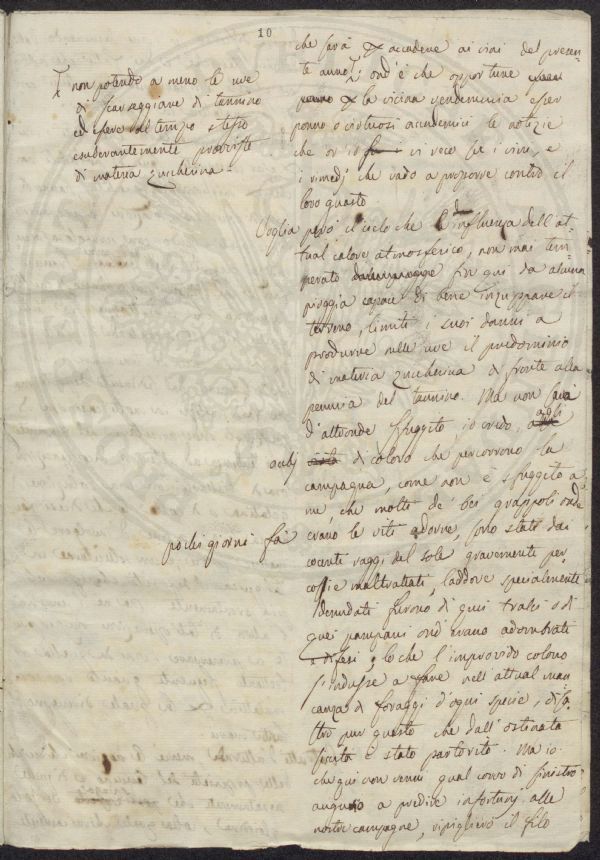 10
che sarà accadere ai vini del presen-
te anno; ond'è che opportune
la vicina vendemmia esser
ponno o virtuosi accademici le notizie
che or io vi reco su i vini, e
i rimedj che vado a proporre contro il
loro guasto.
non potendo a meno le uve
di scarseggiare di tannino
ed essere al tempo stesso
esuberantemente provviste
di materia zuccherina.
Voglia però il cielo che l'influenza dell'at-
tual calore atmosferico, non mai tem-
perato fin qui da alcuna
pioggia capace di bene inzuppare il
terreno, limiti i suoi danni a
produrre nelle uve il predominio
di materia zuccherina a fronte alla
penuria del tannino. Ma non sarà
d'altronde sfuggito, io credo, agli
di coloro che percorrono la
campagna, come non è sfuggito a
me, che molti de' bei grappoli onde
pochi giorni fà
erano le viti adorne, sono stati dai
cocenti raggi del sole gravemente per-
cossi e maltrattati, laddove specialmente
denudati furono di quei tralci o di
quei pampani ond'erano adombrati
e difesi; lo che l'improvido colono
s'indusse a fare nell'attual man-
canza di foraggi d'ogni specie, disa-
stro pur questo che dall'ostinata
siccità è stato partorito. Ma io
che qui non venni qual corvo di sinistro
augurio a predire infortunj alle
nostre campagne, ripiglierò il filo